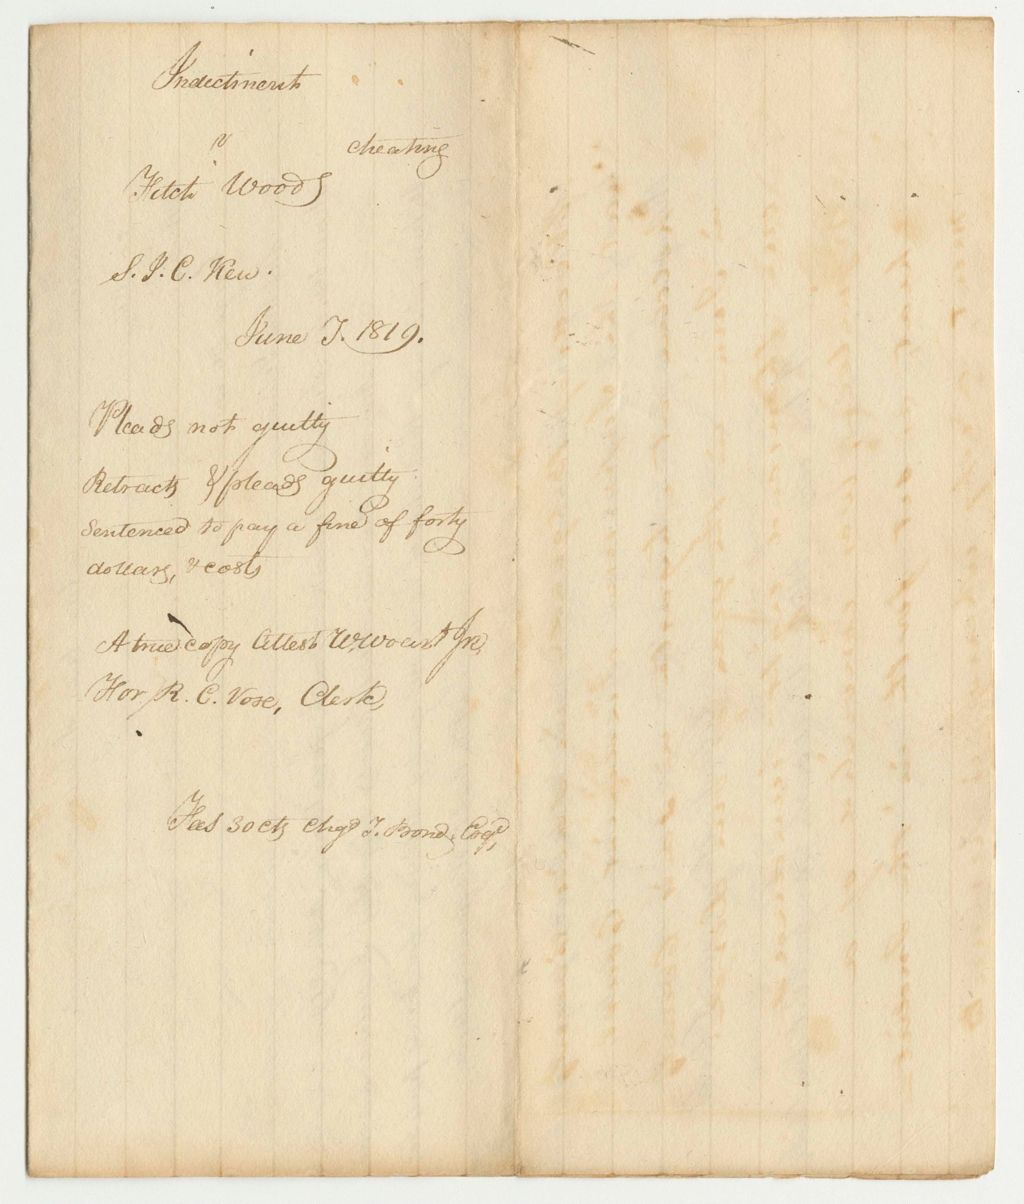 Indictment
v cheating
Fitch Woods
S. J. C. Ken.
June T. 1819.
Pleads not guilty
Retracts & pleads guilty
Sentenced to pay a fine of forty
dollars, & costs
A true copy Attest W. Woart Jr.
For R. C. Vose, Clerk,
Fees 30 cts chgd T. Bond, Esqr,